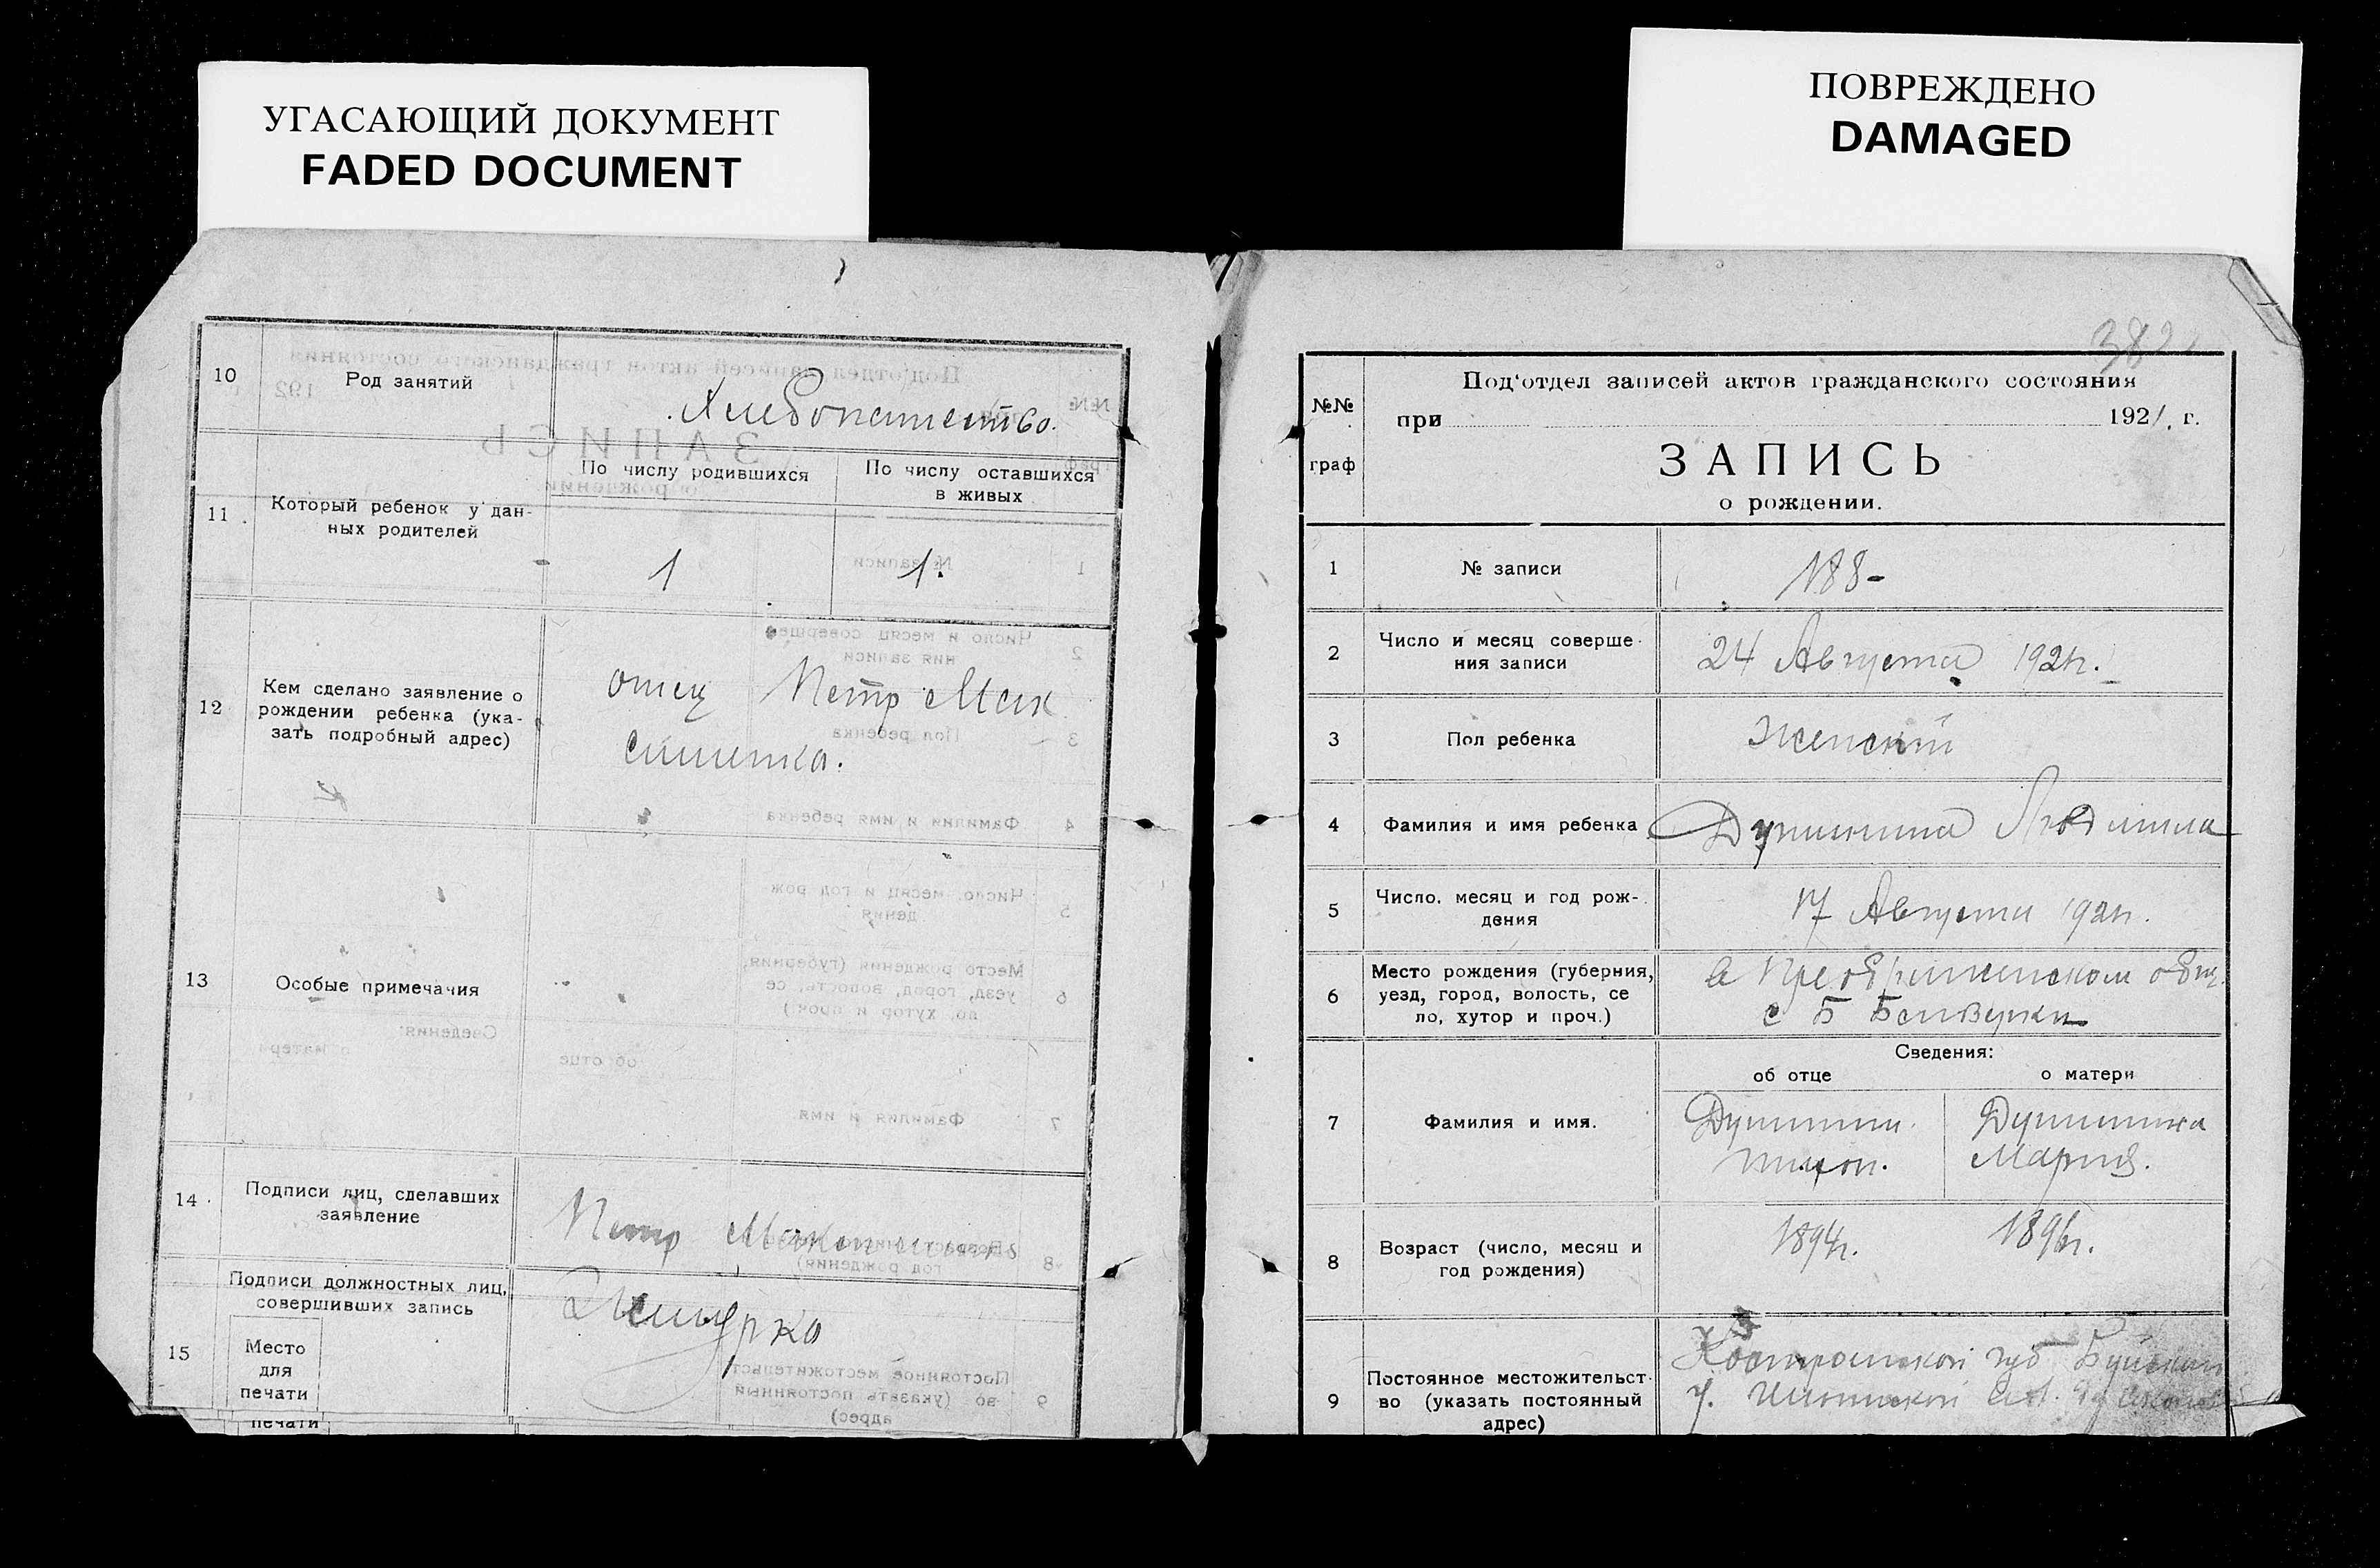 УГАСАЮЩИЙ ДОКУМЕНТ
FADED DOCUMENT
10
Род занятий
Хлебопашество.
11
Который ребенок у дан-
ных родителей
По числу родившихся
По числу оставшихся
в живых
1
1.
12
Кем сделано заявление о
рождении ребенка (ука-
зать подробный адрес)
отец Петр Мак
13
Особые примечания
14
Подписи лиц, сделавших
заявление
Петр
15
Подписи должностных лиц,
совершивших запись
Место
для
печати
печати
ПОВРЕЖДЕНО
DAMAGED
382
№№
граф
Под'отдел записей актов гражданского состояния
при 1921. г.
ЗАПИСЬ
о рождении.
1
№ записи
188-
2
Число и месяц соверше-
ния записи
24 Августа 1921г.
3
Пол ребенка
Женский
4
Фамилия и имя ребенка
Душинина Людмила
5
Число, месяц и год рож-
дения
17 Августа 1921г.
6
Место рождения (губерния,
уезд, город, волость, се
ло, хутор и проч.)
в Преображенском общ.
с Б
Сведения:
об отце
о матери
7
Фамилия и имя.
Тихон.
Мария.
8
Возраст (число, месяц и
год рождения)
1894г.
1896г.
9
Постоянное местожительст-
во (указать постоянный
адрес)
Костромской губ Буйского
у.